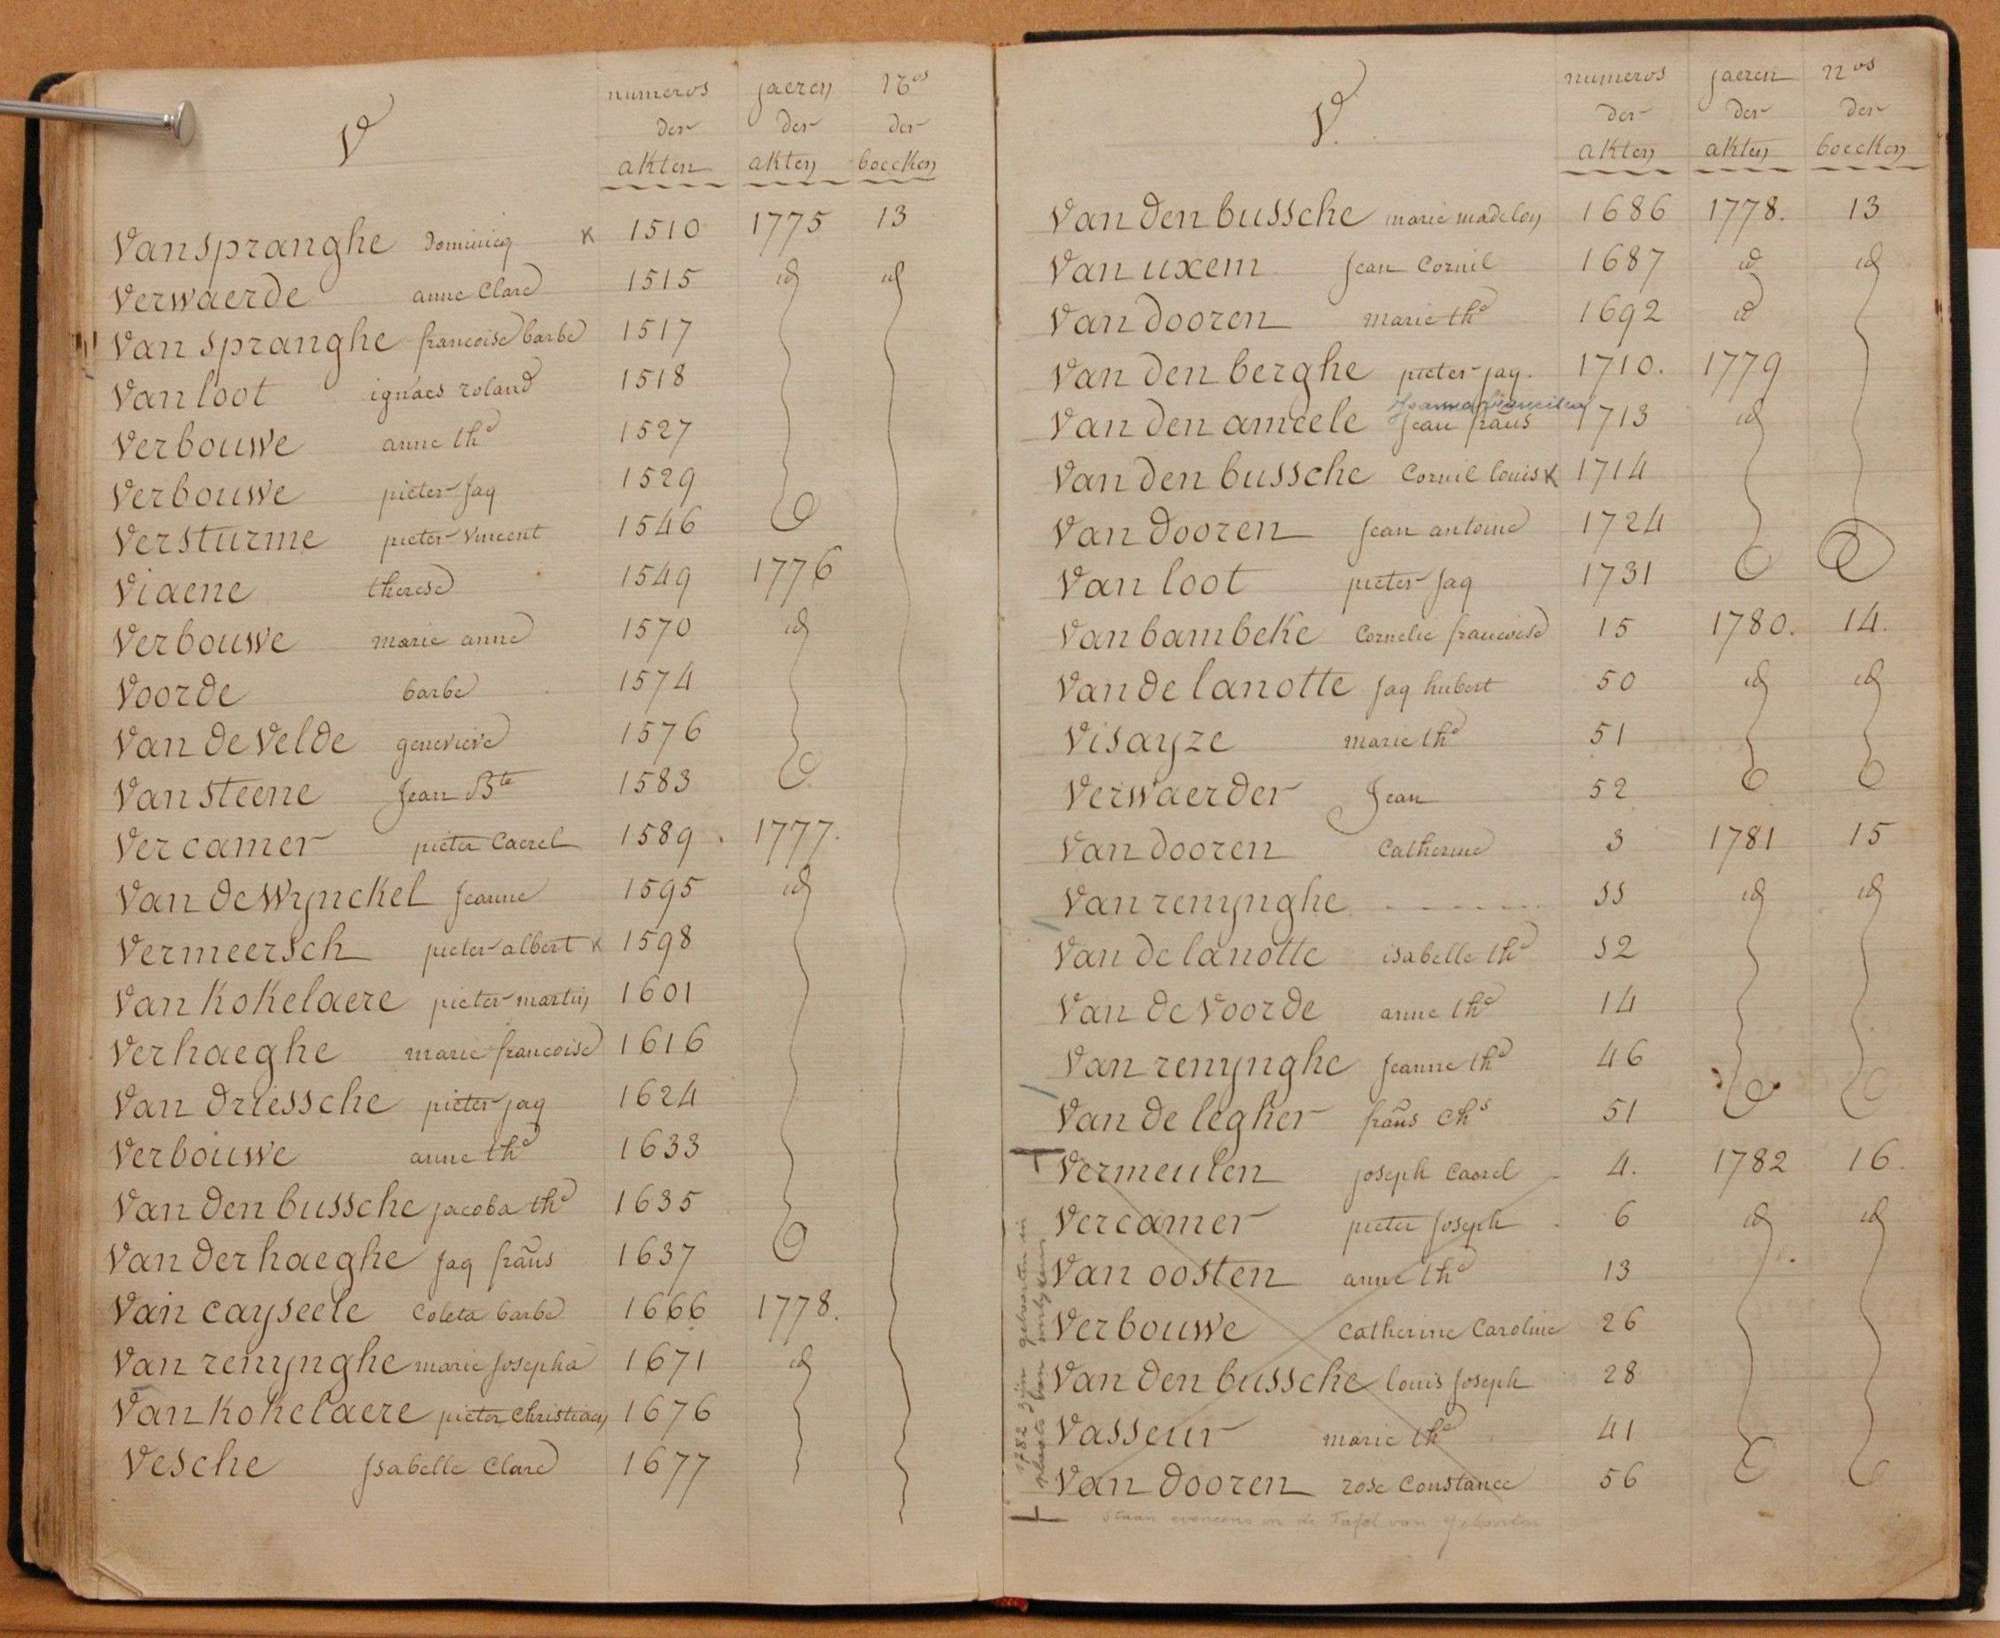 V numeros jaeren Nos
der der der
akten akten boecken
Vanspranghe Dominicq x 1510 1775 13
Verwaerde anne Clare 1515 id id
Van spranghe francoise barbe 1517
Van loot ignaes roland 1518
Verbouwe anne the 1527
Verbouwe pieter Jaq 1529
Versturme pieter Vincent 1546
Viaene therese 1549 1776
Verbouwe marie anne 1570 id
Voorde barbe 1574
Van de Velde genevieve 1576
Van steene Jean Bte 1583
Vercamer pieter Caerel 1589 . 1777.
Van de Wynckel Jeanne 1595 id
Vermeersch pieter albert x 1598
Van Kokelaere pieter martin 1601
Verhaeghe marie francoise 1616
Van driessche pieter jaq 1624
Verbouwe anne the 1633
Van den bussche jacoba the 1635
Van der haeghe Jaq frans 1637
Van cayseele Coleta barbe 1666 1778.
Van renynghe marie Josepha 1671 id
Van Kokelaere pieter Christiaen 1676
Vesche Isabelle Clare 1677
V. numeros jaeren nos
der der der
akten akten boecken
Van den bussche marie madelon 1686 1778. 13
Van uxem Jean Cornil 1687 id id
Van dooren marie the 1692 id
Van den berghe pieter jaq. 1710. 1779
Joanna Francisca
Van den ameele Jean frans 1713 id
Van den bussche Cornil louis x 1714
Van dooren Jean antoine 1724
Van loot pieter Jaq 1731
Van bambeke Cornelie francoise 15 1780. 14.
Van de lanotte Jaq hubert 50 id id
Visayze marie the 51
Verwaerder Jean 52
Van dooren Catherine 3 1781 15
Van renynghe - - - - - - 33 id id
Van de lanotte isabelle the 32
Van de Voorde anne the 14
Van renynghe Jeanne the 46
Van de legher frans Chs 51
Vermeulen joseph Caerel 4. 1782 16.
Vercamer pieter Joseph 6 id id
Van oosten anne the 13
Verbouwe Catherine Caroline 26
Van den bussche louis Joseph 28
Vasseur marie the 41
Van dooren rose Constance 56
staan eveneens in de Tafel van geboorten
1782 zijn geboorten in
plaats van overlijdens